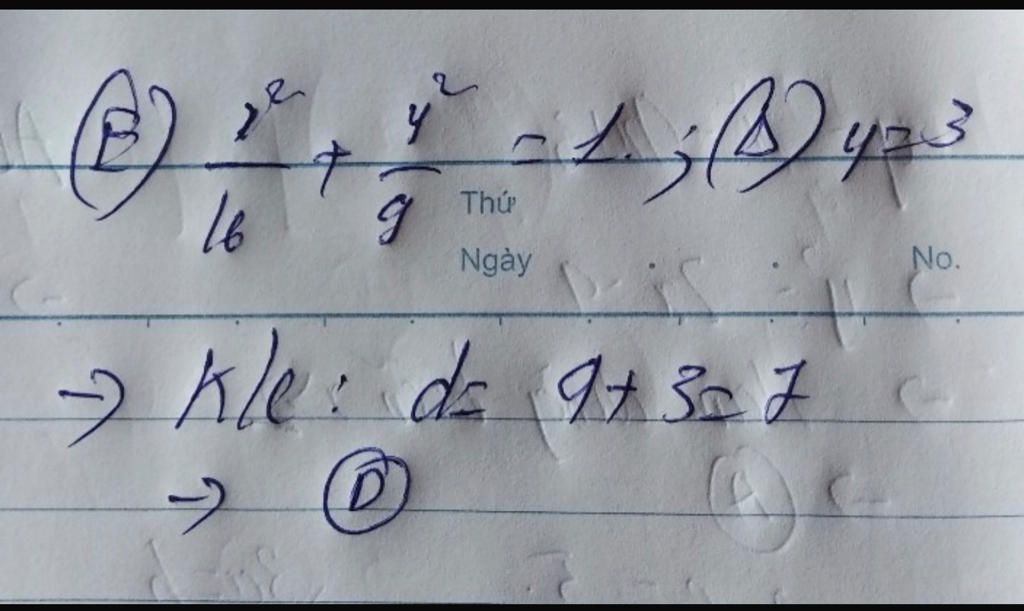 (E) x²/16 + y²/9 = 1. ; (Δ) y = 3
Thứ
Ngày No.
→ K/c : d = 9 + 3 = 7
→ D